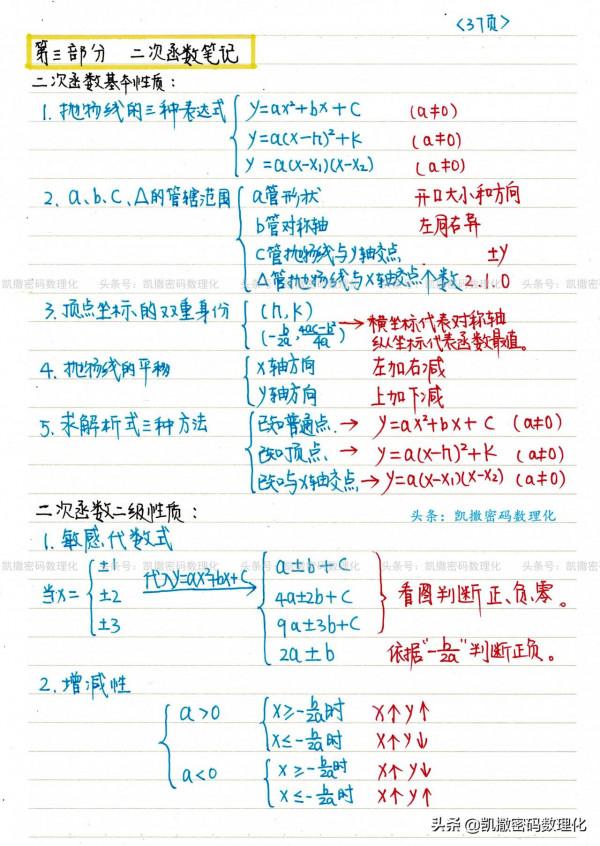 <37页>
第三部分 二次函数笔记
二次函数基本性质：
1. 抛物线的三种表达式 y=ax²+bx+c (a≠0)
y=a(x-h)²+k (a≠0)
y=a(x-x₁)(x-x₂) (a≠0)
2. a、b、c、△的管辖范围 a管形状 开口大小和方向
b管对称轴 左同右异
c管抛物线与y轴交点 ±y
△管抛物线与x轴交点个数 2.1.0
凯撒密码数理化 头条号：凯撒密码数理化 头条号：凯撒密码数理化 头条号：凯撒密码数理化
3. 顶点坐标的双重身份 (h,k)
(-b/2a, 4ac-b²/4a) → 横坐标代表对称轴
纵坐标代表函数最值。
4. 抛物线的平移 x轴方向 左加右减
y轴方向 上加下减
5. 求解析式三种方法 已知普通点 → y=ax²+bx+c (a≠0)
已知顶点 → y=a(x-h)²+k (a≠0)
已知与x轴交点 → y=a(x-x₁)(x-x₂) (a≠0)
二次函数二级性质： 头条：凯撒密码数理化
1. 敏感代数式
凯撒密码数理化 头条号：凯撒密码数理化 头条号：凯撒密码数理化 头条号：凯撒密码数理化
当x= ±1 代入y=ax²+bx+c a±b+c
±2 4a±2b+c 看图判断正、负、零。
±3 9a±3b+c
2a±b 依据"-b/2a"判断正负。
2. 增减性
a>0 x≥-b/2a时 x↑y↑
x≤-b/2a时 x↑y↓
a<0 x≥-b/2a时 x↑y↓
x≤-b/2a时 x↑y↑
头条 @凯撒密码数理化